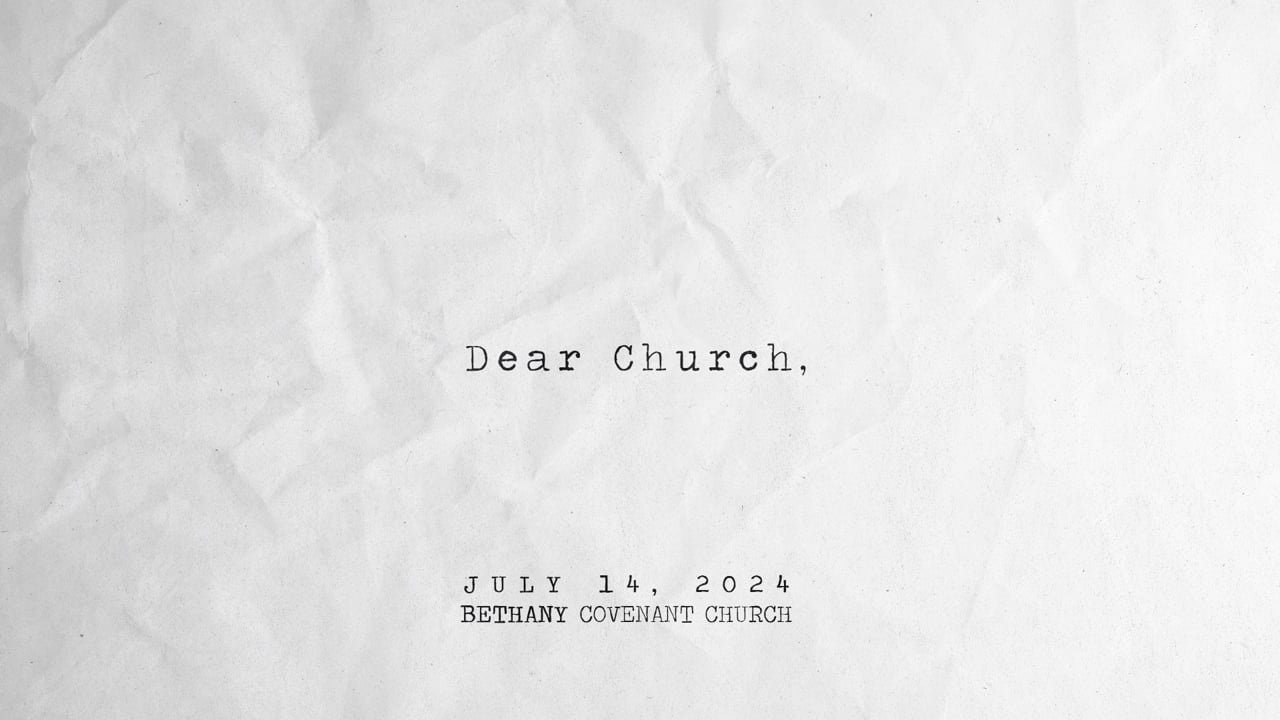 Dear Church,
JULY 14, 2024
BETHANY COVENANT CHURCH